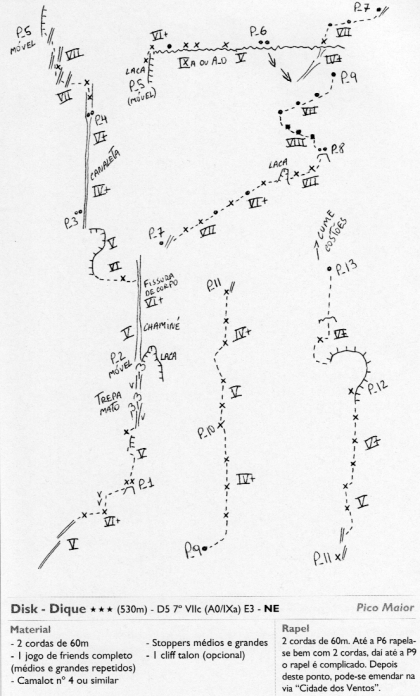 P_5
MÓVEL
VII
VII
P_4
VI+
CANALETA
IV+
P_3
V
VI
FISSURA
DE CORPO
VI+
V
CHAMINÉ
P_2
MÓVEL
LACA
TREPA
MATO
V
P_1
VI+
V
VI+
P_6
P_7
VII
LACA
IXA OU A0
V
VI+
P_5
(MÓVEL)
P_9
VII
VIII
P_8
LACA
VII
VI+
VII
P_7
P_11
IV+
V
P_10
IV+
P_9
CUME
COSTÕES
P_13
VI
P_12
VI
V
P_11
Disk - Dique ★★★ (530m) - D5 7º VIIc (A0/IXa) E3 - NE
Pico Maior
Material
- 2 cordas de 60m
- 1 jogo de friends completo
(médios e grandes repetidos)
- Camalot nº 4 ou similar
- Stoppers médios e grandes
- 1 cliff talon (opcional)
Rapel
2 cordas de 60m. Até a P6 rapela-
se bem com 2 cordas, daí até a P9
o rapel é complicado. Depois
deste ponto, pode-se emendar na
via “Cidade dos Ventos”.